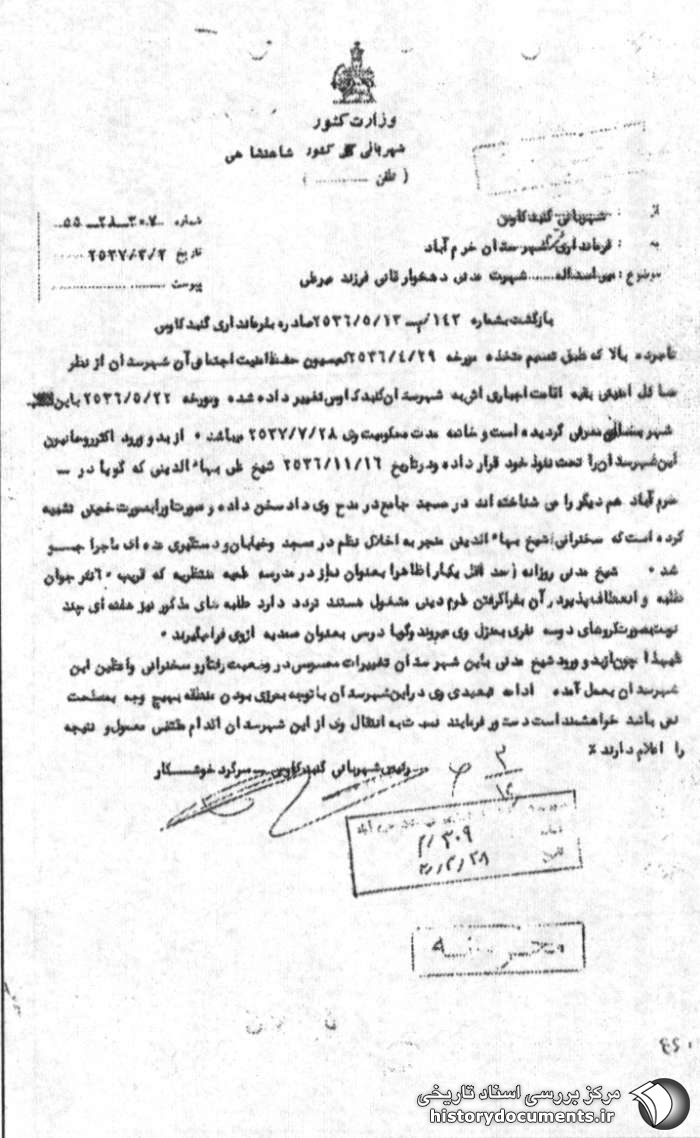 وزارت کشور
شهربانی کل کشور شاهنشاهی
( تلفن ............ )
از : شهربانی گنبد کاوس
شماره ۵۵ـ۲۸ـ۳۰۷
به : فرمانداری شهرستان خرم آباد
تاریخ ۲۵۳۷/۳/۲
موضوع : میر اسداله ...... شهرت مدنی دهخوارقانی فرزند میرعلی
پیوست
بازگشت بشماره ۱۴۲/م ـ ۲۵۳۶/۵/۱۳ صادره بفرمانداری گنبد کاوس
نامبرده بالا که طبق تصمیم متخذه مورخه ۲۵۳۶/۴/۲۹ کمیسیون حفظ امنیت اجتماعی آن شهرستان از نظر
مسائل امنیتی بقیه اقامت اجباری اش به شهرستان گنبد کاوس تغییر داده شده و مورخه ۲۵۳۶/۵/۲۲ باین
شهربانی معرفی گردیده است و خاتمه مدت محکومیت وی ۲۵۳۷/۷/۲۸ میباشد ۰ از بدو ورود اکثر روحانیون
این شهرستان را تحت نفوذ خود قرار داده و در تاریخ ۲۵۳۶/۱۱/۱۶ شیخ علی بهاءالدینی که گویا در ــ
خرم آباد هم دیگر را می شناخته اند در مسجد جامع در مدح وی داد سخن داده و صورت او را بصورت خمینی تشبیه
کرده است که سخنرانی شیخ بهاءالدینی منجر به اخلال نظم در مسجد و خیابان و دستگیری عده ای ماجراجو
شد ۰ شیخ مدنی روزانه ( حداقل یکبار ) ظاهرا بعنوان نماز در مدرسه علمیه منتظریه که قریب ۶۰ نفر جوان
طلبه و انعطاف پذیر در آن بفراگرفتن علوم دینی مشغول هستند تردد دارد طلبه های مذکور نیز هفته ای چند
نوبت بصورت گروهای دوسه نفری بمنزل وی میروند و گویا درسی بعنوان صمدیه از وی فرا میگیرند ۰
علیهذا چون از بدو ورود شیخ مدنی باین شهرستان تغییرات محسوسی در وضعیت رفتار و سخنرانی واعظین این
شهرستان بعمل آمده ادامه تبعیدی وی در این شهرستان با توجه بمرزی بودن منطقه بهیچ وجه بمصلحت
نمی باشد خواهشمند است دستور فرمایند نسبت به انتقال وی از این شهرستان اقدام مقتضی معمول و نتیجه
را اعلام دارند ٪
رئیس شهربانی گنبد کاوس ـ سرگرد خوشکار
۳۰۹/م
محرمانه
مرکز بررسی اسناد تاریخی
historydocuments.ir